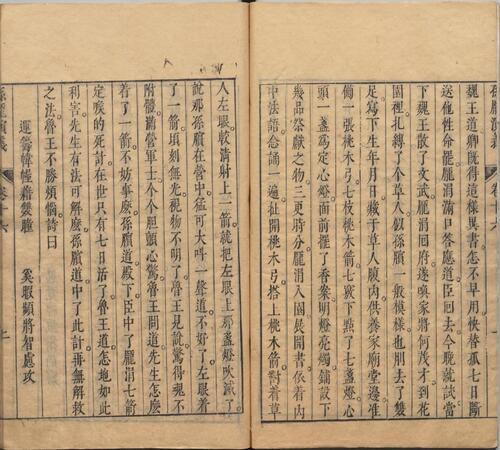 魏王道卿既得這樣異書怎不早用快替孤七日斷
送他性命龐涓滿口答應道臣回去今晚就試當
下魏王散了文武龐涓回府遂喚家將何茂才到花
園裡扎縛了个草人似孫臏一般模樣也刖去了雙
足寫下生年月日藏于草人腹內供養家廟堂邊准
備一張桃木弓七枝桃木箭七竅下點了七盞燈心
頭一盞為定心燈前面擺了香案明燈亮燭鋪設下
幾品祭獻之物三更時分龐涓入園長開書依着內
中法語念誦一遍祉開桃木弓搭上桃木箭對着草
人左眼較清射上一箭統把左眼上那盞燈吹滅了
說那孫臏在營中猛可大呌一聲道不好了左眼着
了一箭頃刻無光視物不明了魯王見說驚得魂不
附體滿營軍士个个胆顫心驚魯王問道先生怎麽
着了一箭不妨事麽孫臏道殿下臣中了龐涓七箭
定喉的死計在世只有七日活了魯王道怎地如此
利害先生有法可解麽孫臏道中了此計再無解救
之法魯王不勝煩惱詩曰
運籌幃幄藉賢臣
奚暇顛將智處攻
孫龐演義
卷十六
上